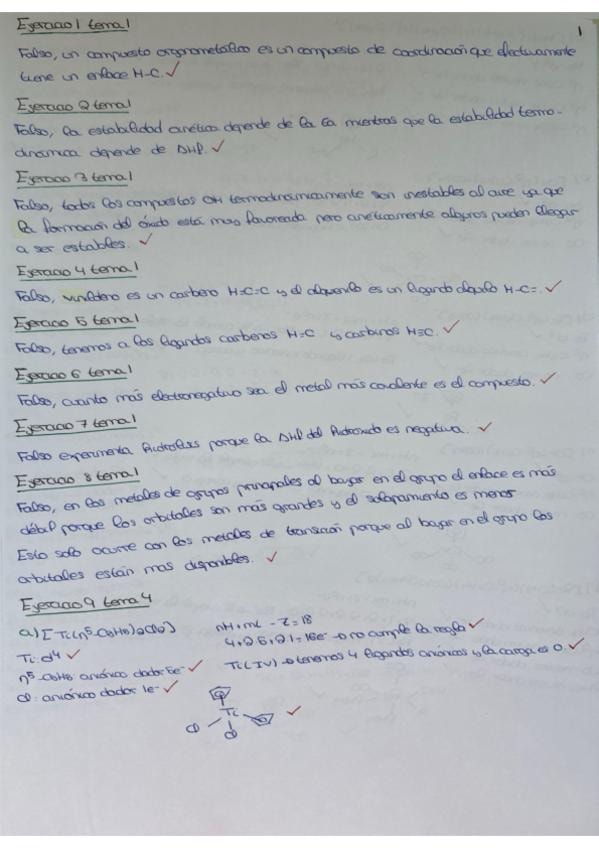 1
Ejercicio 1 tema 1
Falso, un compuesto organometálico es un compuesto de coordinación que efectivamente
tiene un enlace M-C. ✓
Ejercicio 2 tema 1
Falso, la estabilidad cinética depende de la Ea mientras que la estabilidad termo-
dinámica depende de ΔHf. ✓
Ejercicio 3 tema 1
Falso, todos los compuestos OM termodinámicamente son inestables al aire ya que
la formación del óxido está muy favorecida pero cinéticamente algunos pueden llegar
a ser estables. ✓
Ejercicio 4 tema 1
Falso, vinilideno es un carbeno M=C=C y el alquenilo es un ligando alquilo M-C=. ✓
Ejercicio 5 tema 1
Falso, tenemos a los ligandos carbenos M=C y carbinos M≡C. ✓
Ejercicio 6 tema 1
Falso, cuanto más electronegativo sea el metal más covalente es el compuesto. ✓
Ejercicio 7 tema 1
Falso experimenta hidrólisis porque la ΔHf del hidróxido es negativa. ✓
Ejercicio 8 tema 1
Falso, en los metales de grupos principales al bajar en el grupo el enlace es más
débil porque los orbitales son más grandes y el solapamiento es menor
Esto solo ocurre con los metales de transición porque al bajar en el grupo los
orbitales están mas disponibles. ✓
Ejercicio 9 tema 4
a) [Tc(η⁵-C5H5)2Cl2]
nM+mL-z=18
Tc: d4 ✓
4+2·5+2·1=16e⁻ → no cumple la regla ✓
η⁵-C5H5 aniónico dador 5e⁻ ✓
Tc(IV) → tenemos 4 ligandos aniónicos y la carga es 0. ✓
Cl: aniónico dador 1e⁻ ✓
Tc
Cl
Cl
✓